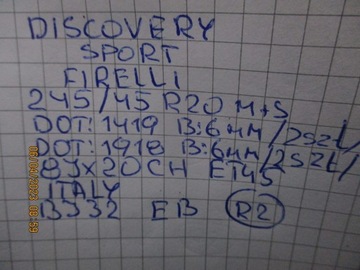 DISCOVERY
SPORT
FIRELLI
245/45 R20 M+S
DOT: 1419 B:6MM/2SZT/
DOT: 1918 B:6MM/2SZT/
8JX20CH ET45
ITALY
B332 EB R2